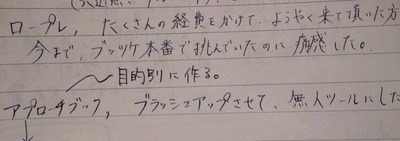 ロープレ,たくさんの経費をかけて、ようやく来て頂いた方
今まで、ブッツケ本番で挑んでいたのに痛感した。
目的別に作る。
アプローチブック,ブラッシュアップさせて、無人ツールにした